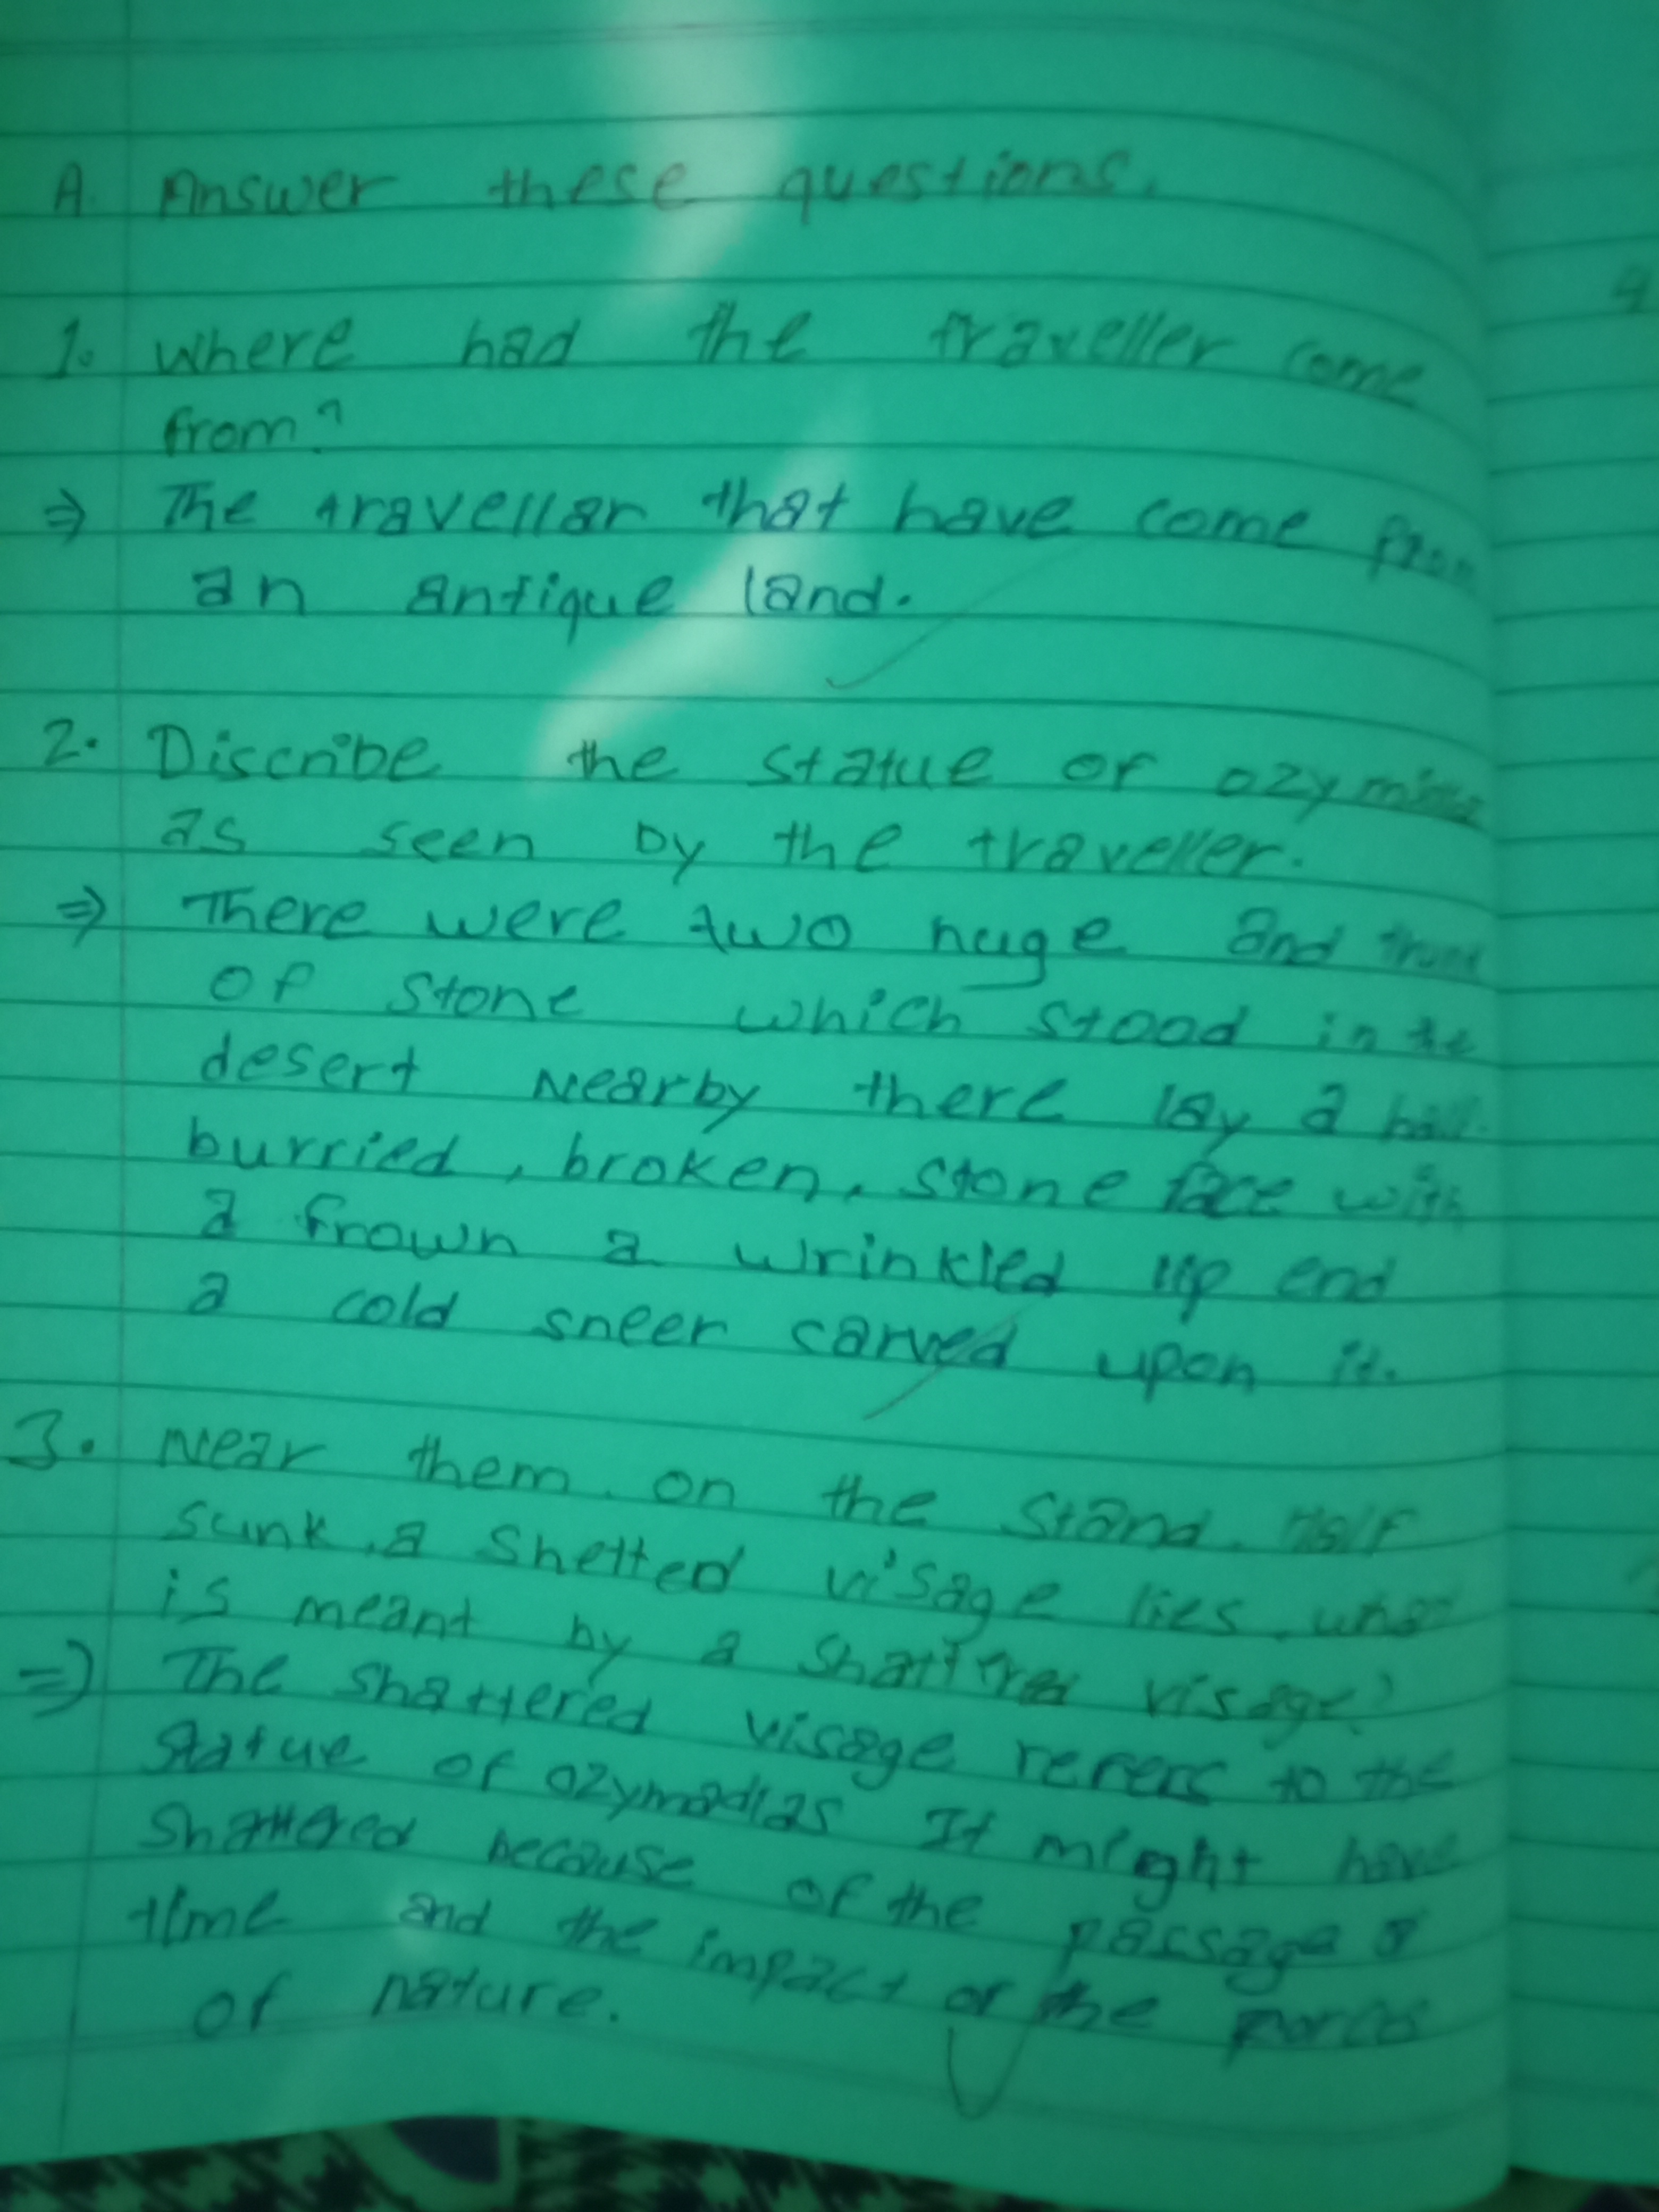 A. Answer these questions.
1. where had the traveller come
from?
⇒ The travellar that have come from
an antique land.
2. Discribe the statue of
as seen by the traveller.
⇒ There were two huge and
of stone which stood in the
desert Nearby there lay a
burried, broken, stone face with
a frown a wrinkled lip end
a cold sneer carved upon it.
3. Near them on the stand. Half
sunk, a shetted visage lies.
is meant by a visage?
⇒ The shattered visage referc to the
statue of ozymadias It might have
shattered because of the passage of
time and the impact of the
of nature.